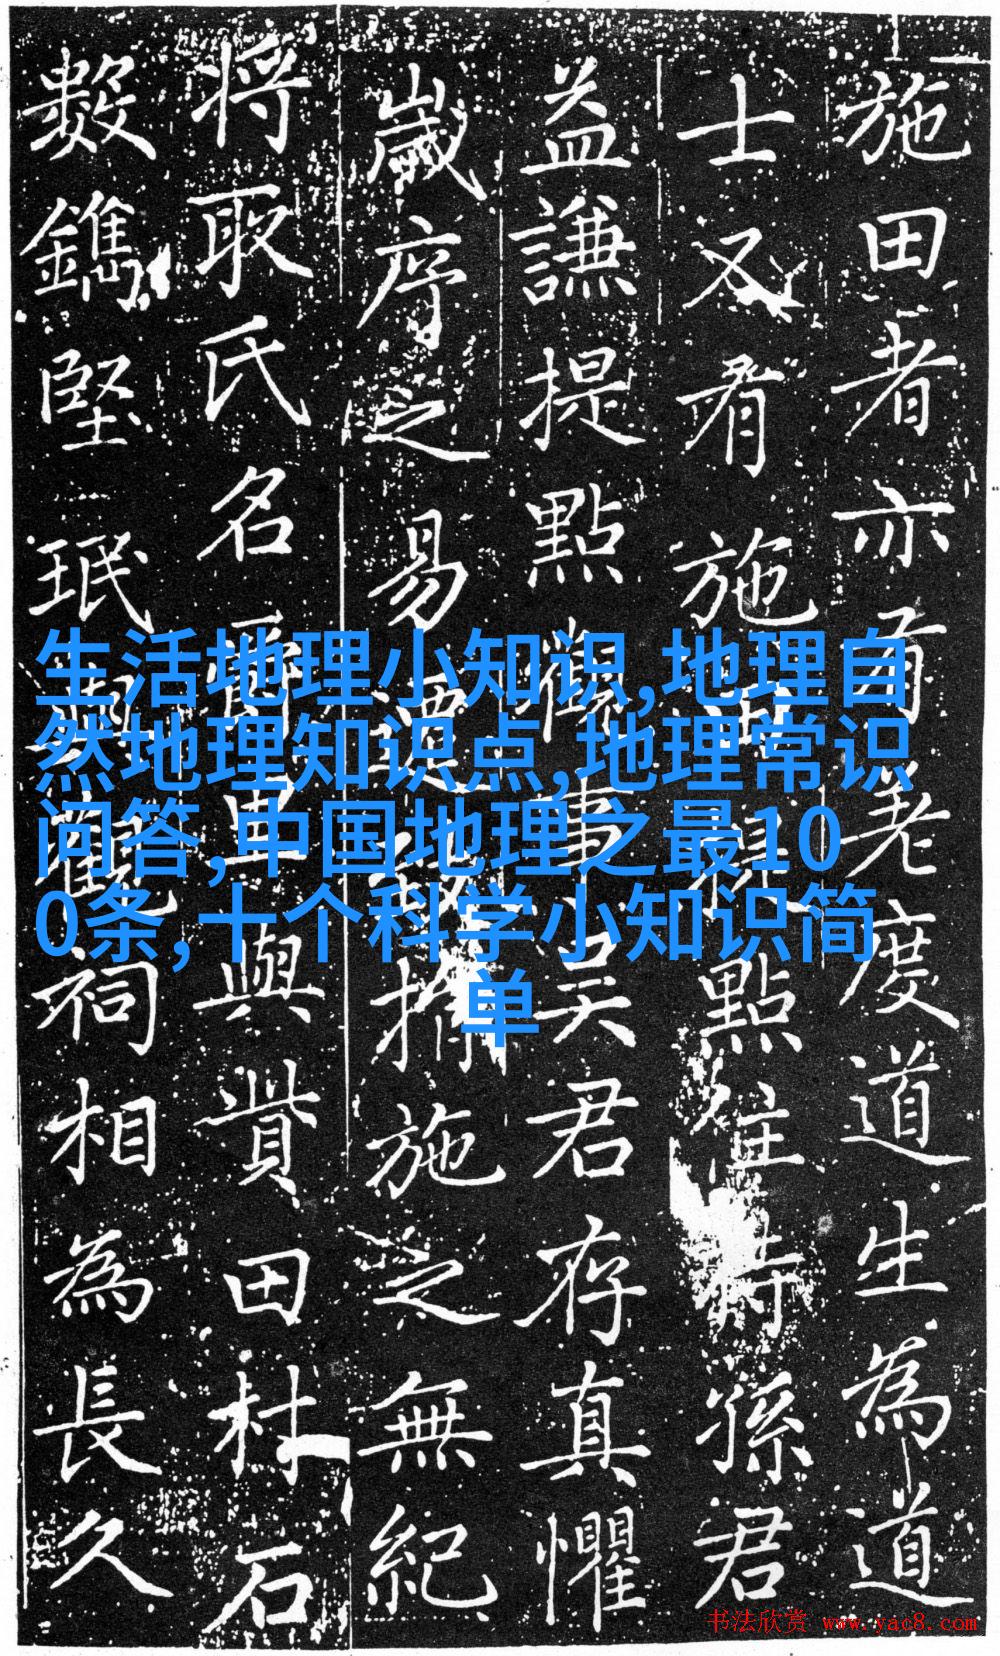 施田者亦有老度道生為道
士又有施提點住持孫君
益謙提點吳君存真懼
嵗序之易施之無紀
將取氏名與貲田村石
數鐫堅珉祠相為長久
生活地理小知识,地理自
然地理知识点,地理常识
问答,中国地理之最10
0条,十个科学小知识简
单
书法欣赏 www.yac8.com